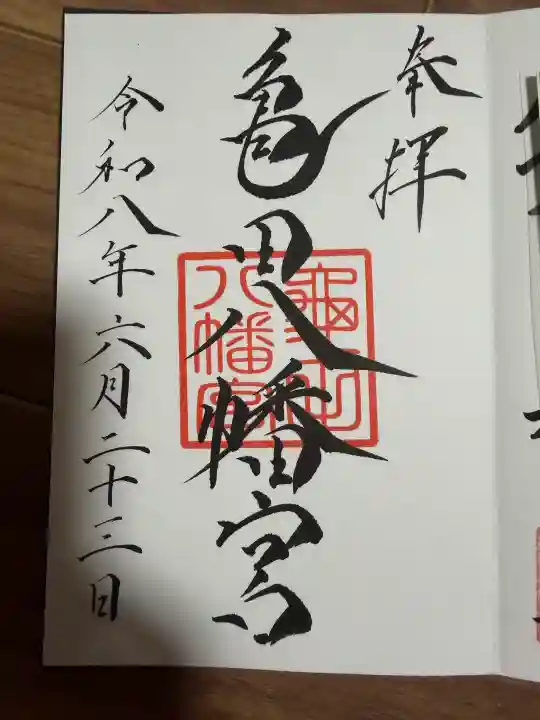 奉拝
亀田八幡宮
亀田
八幡宮
令和八年六月二十三日